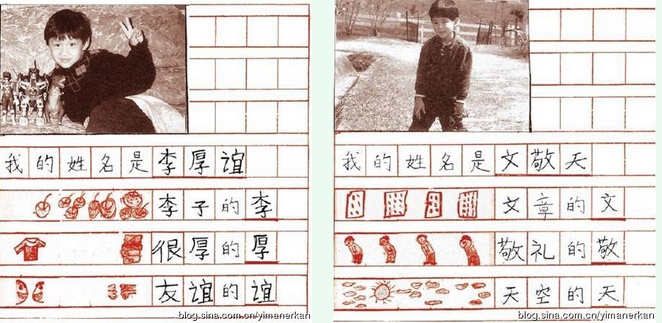 我的姓名是李厚谊
李子的李
很厚的厚
友谊的谊
blog.sina.com.cn/yimanerkan
我的姓名是文敬天
文章的文
敬礼的敬
天空的天
blog.sina.com.cn/yimanerkan